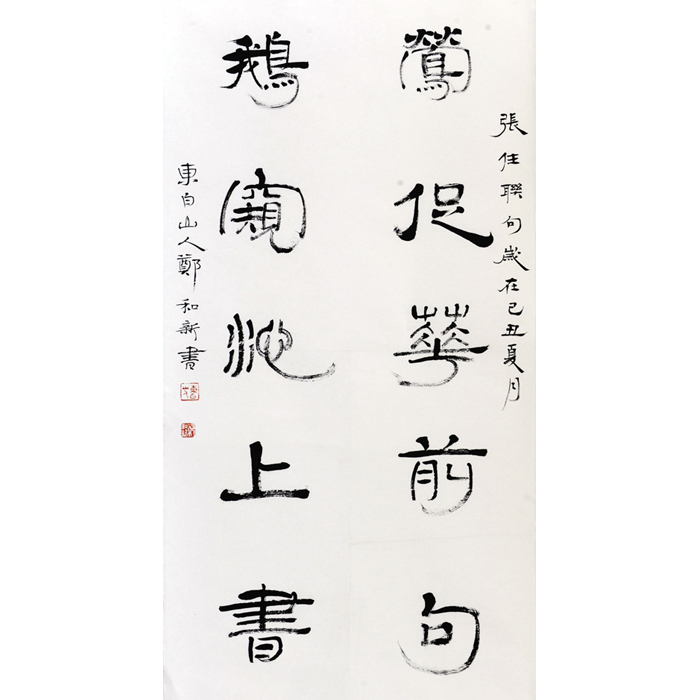 張住聯句歲在己丑夏月
鶯促華前句
鵝窺池上書
東白山人鄭和新書